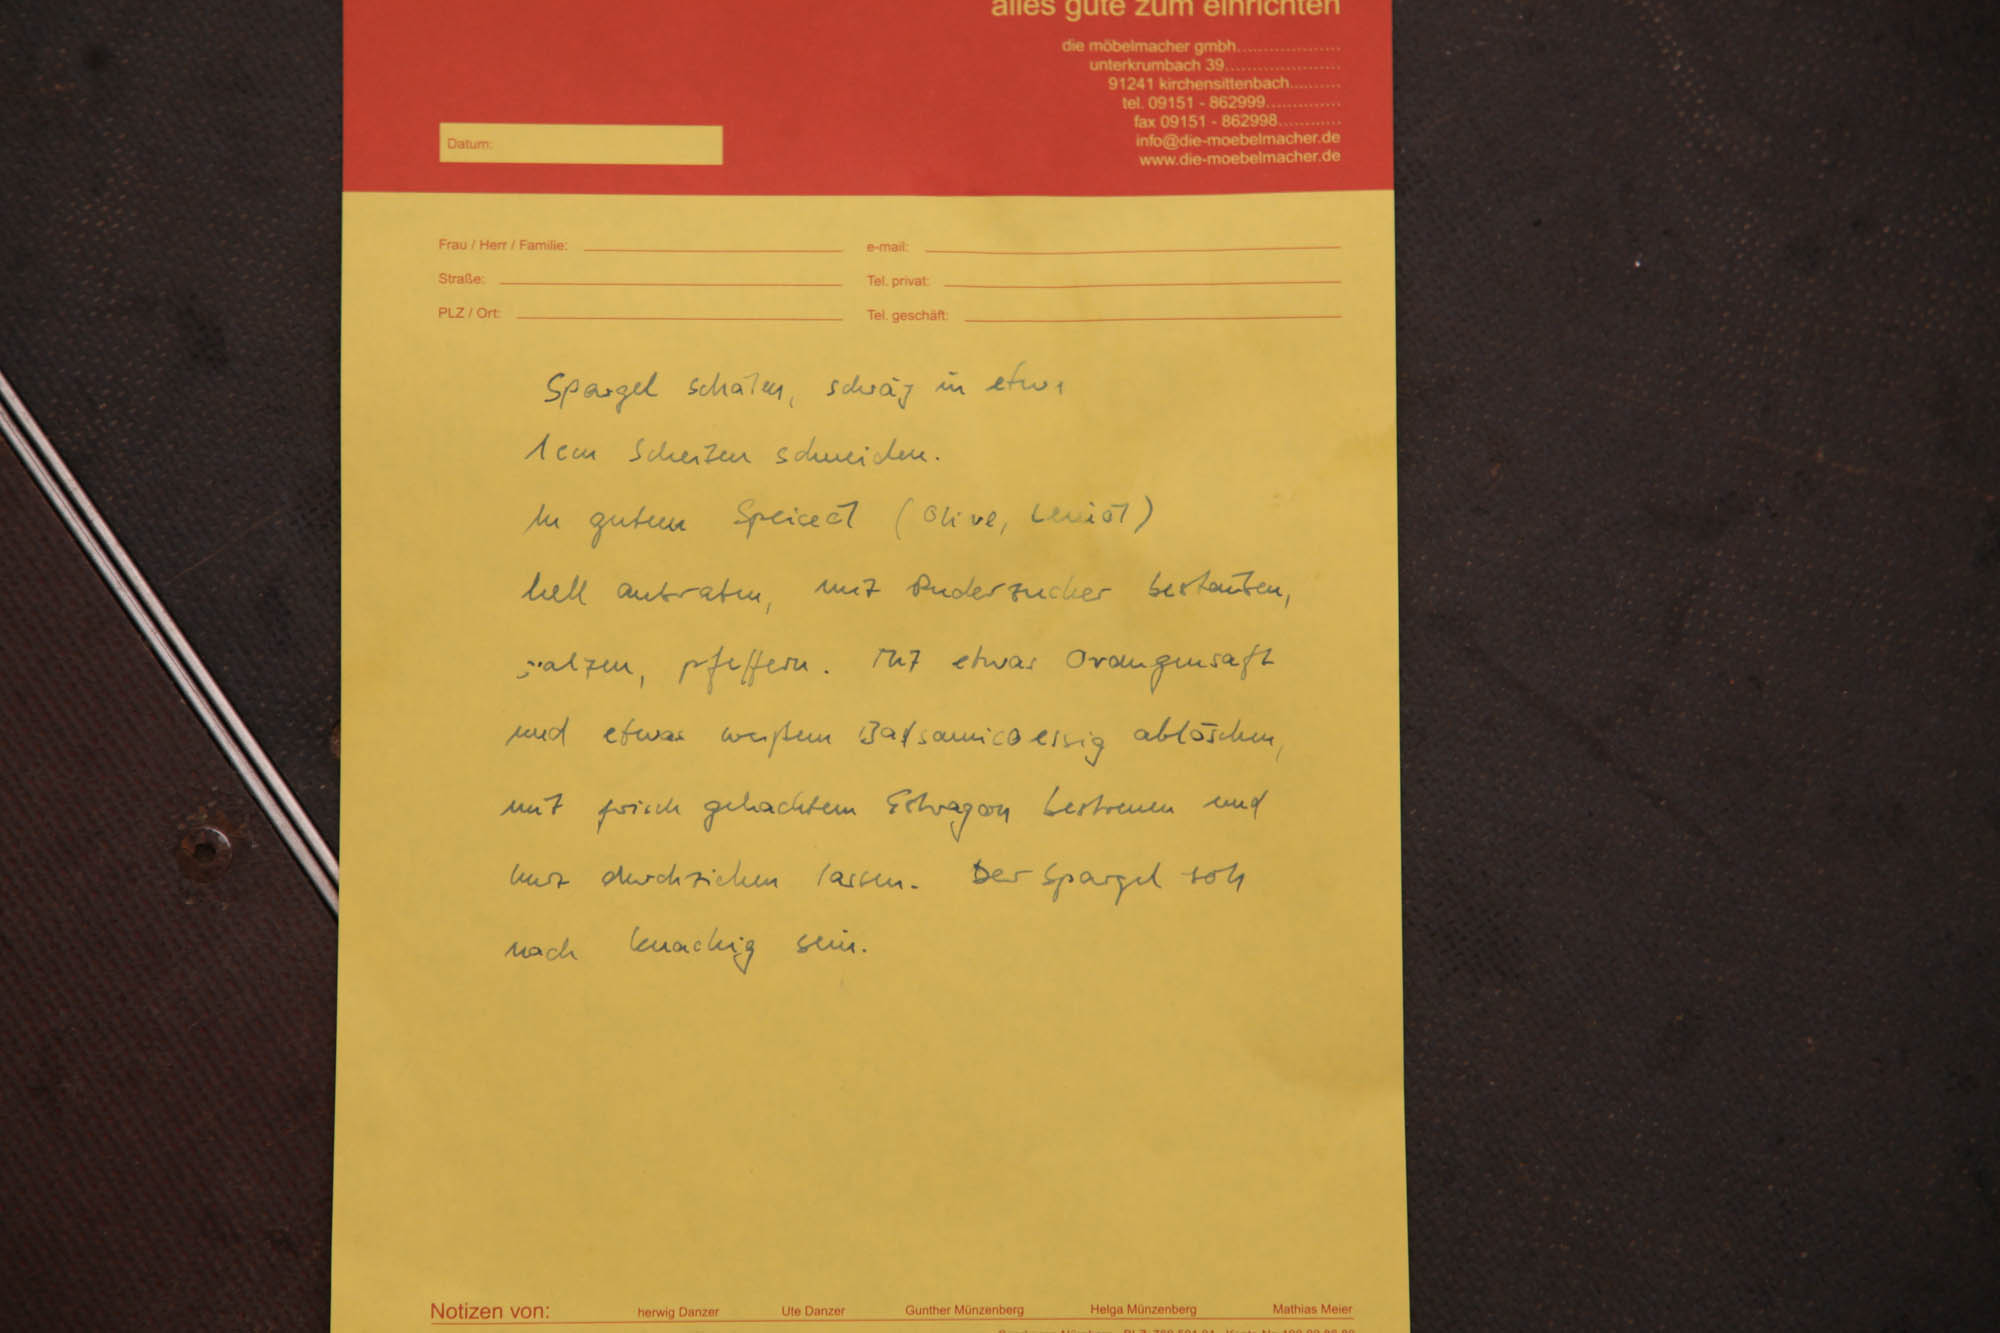 alles gute zum einrichten
die möbelmacher gmbh...................
unterkrumbach 39......................
91241 kirchensittenbach..........
tel. 09151 - 862999..............
fax 09151 - 862998............
info@die-moebelmacher.de
www.die-moebelmacher.de
Datum:
Frau / Herr / Familie: e-mail:
Straße: Tel. privat:
PLZ / Ort: Tel. geschäft:
Spargel schälen, schräg in etwa
1cm Scheiben schneiden.
In gutem Speiseöl (Olive, Leinöl)
hell anbraten, mit Puderzucker bestäuben,
salzen, pfeffern. Mit etwas Orangensaft
und etwas weißem Balsamicoessig ablöschen,
mit frisch gehacktem Estragon bestreuen und
kurz durchziehen lassen. Der Spargel soll
noch knackig sein.
Notizen von: herwig Danzer Ute Danzer Gunther Münzenberg Helga Münzenberg Mathias Meier